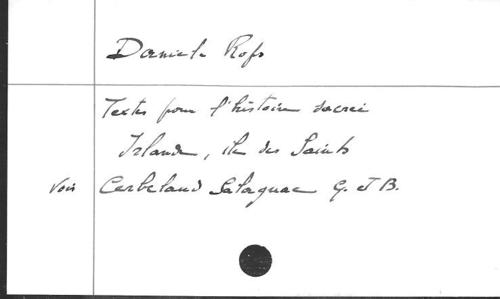 Daniel Rops
Textes pour l'histoire sacrée
Irlande, île des Saints
Voir Cerbelaud Salagnac G. et B.